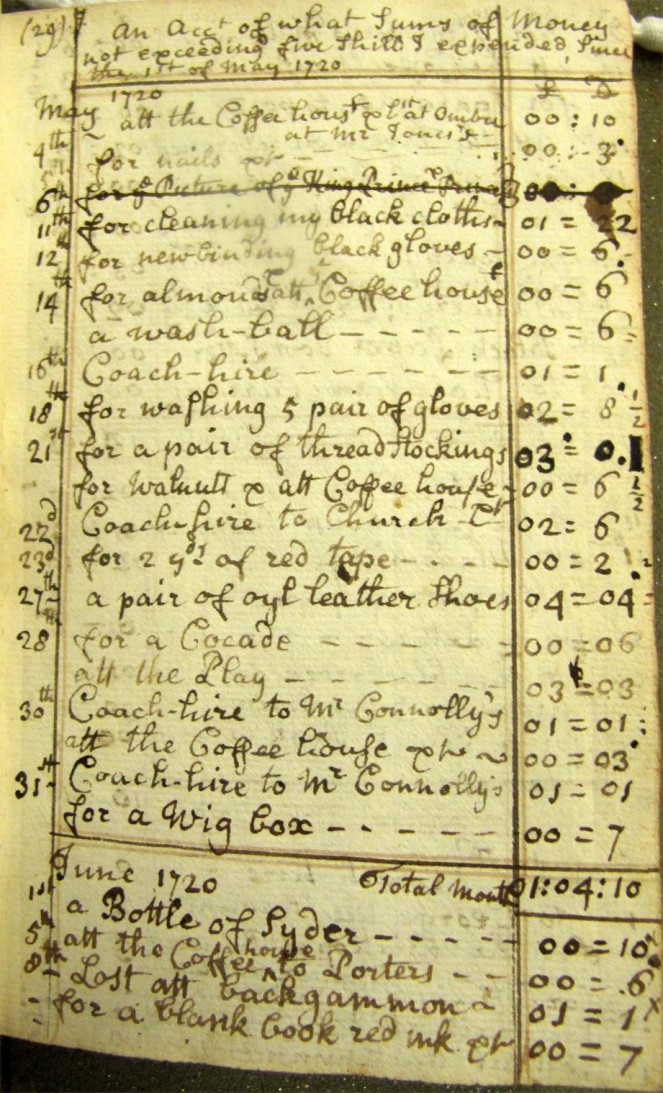 (29) An Acct of what Sums of Money
not exceeding five Shills I expended Since
the 1st of May 1720
May 1720
att the Coffee house & lost at Ombre 00 : 10
at Mr Jones's
4th for nails 00 : 3
6th for ye Picture of ye King Prince
11th for cleaning my black cloths 01 = 22
12th for newbinding black gloves 00 = 6
14th for almonds att ye Coffee house 00 = 6
a wash-ball 00 = 6
16th Coach-hire 01 = 1
18th for washing 5 pair of gloves 02 = 8 1/2
21st for a pair of thread stockings 03 = 0.1
for Walnutt att Coffee house 00 = 6 1/2
22d Coach-hire to Church 02 = 6
23d for 2 yds of red tape 00 = 2
27th a pair of oyl leather Shoes 04 = 04
28th for a Cocade 00 = 06
att the Play 03 = 03
30th Coach-hire to Mr Connolly's 01 = 01
att the Coffee house 00 = 03
31st Coach-hire to Mr Connolly's 01 = 01
for a Wig box 00 = 7
Total Month 01:04:10
June 1720
1st a Bottle of Syder 00 = 10
5th att the Coffee house to Porters 00 = 6
8th Lost att backgammon 01 = 1
for a blank book red ink 00 = 7